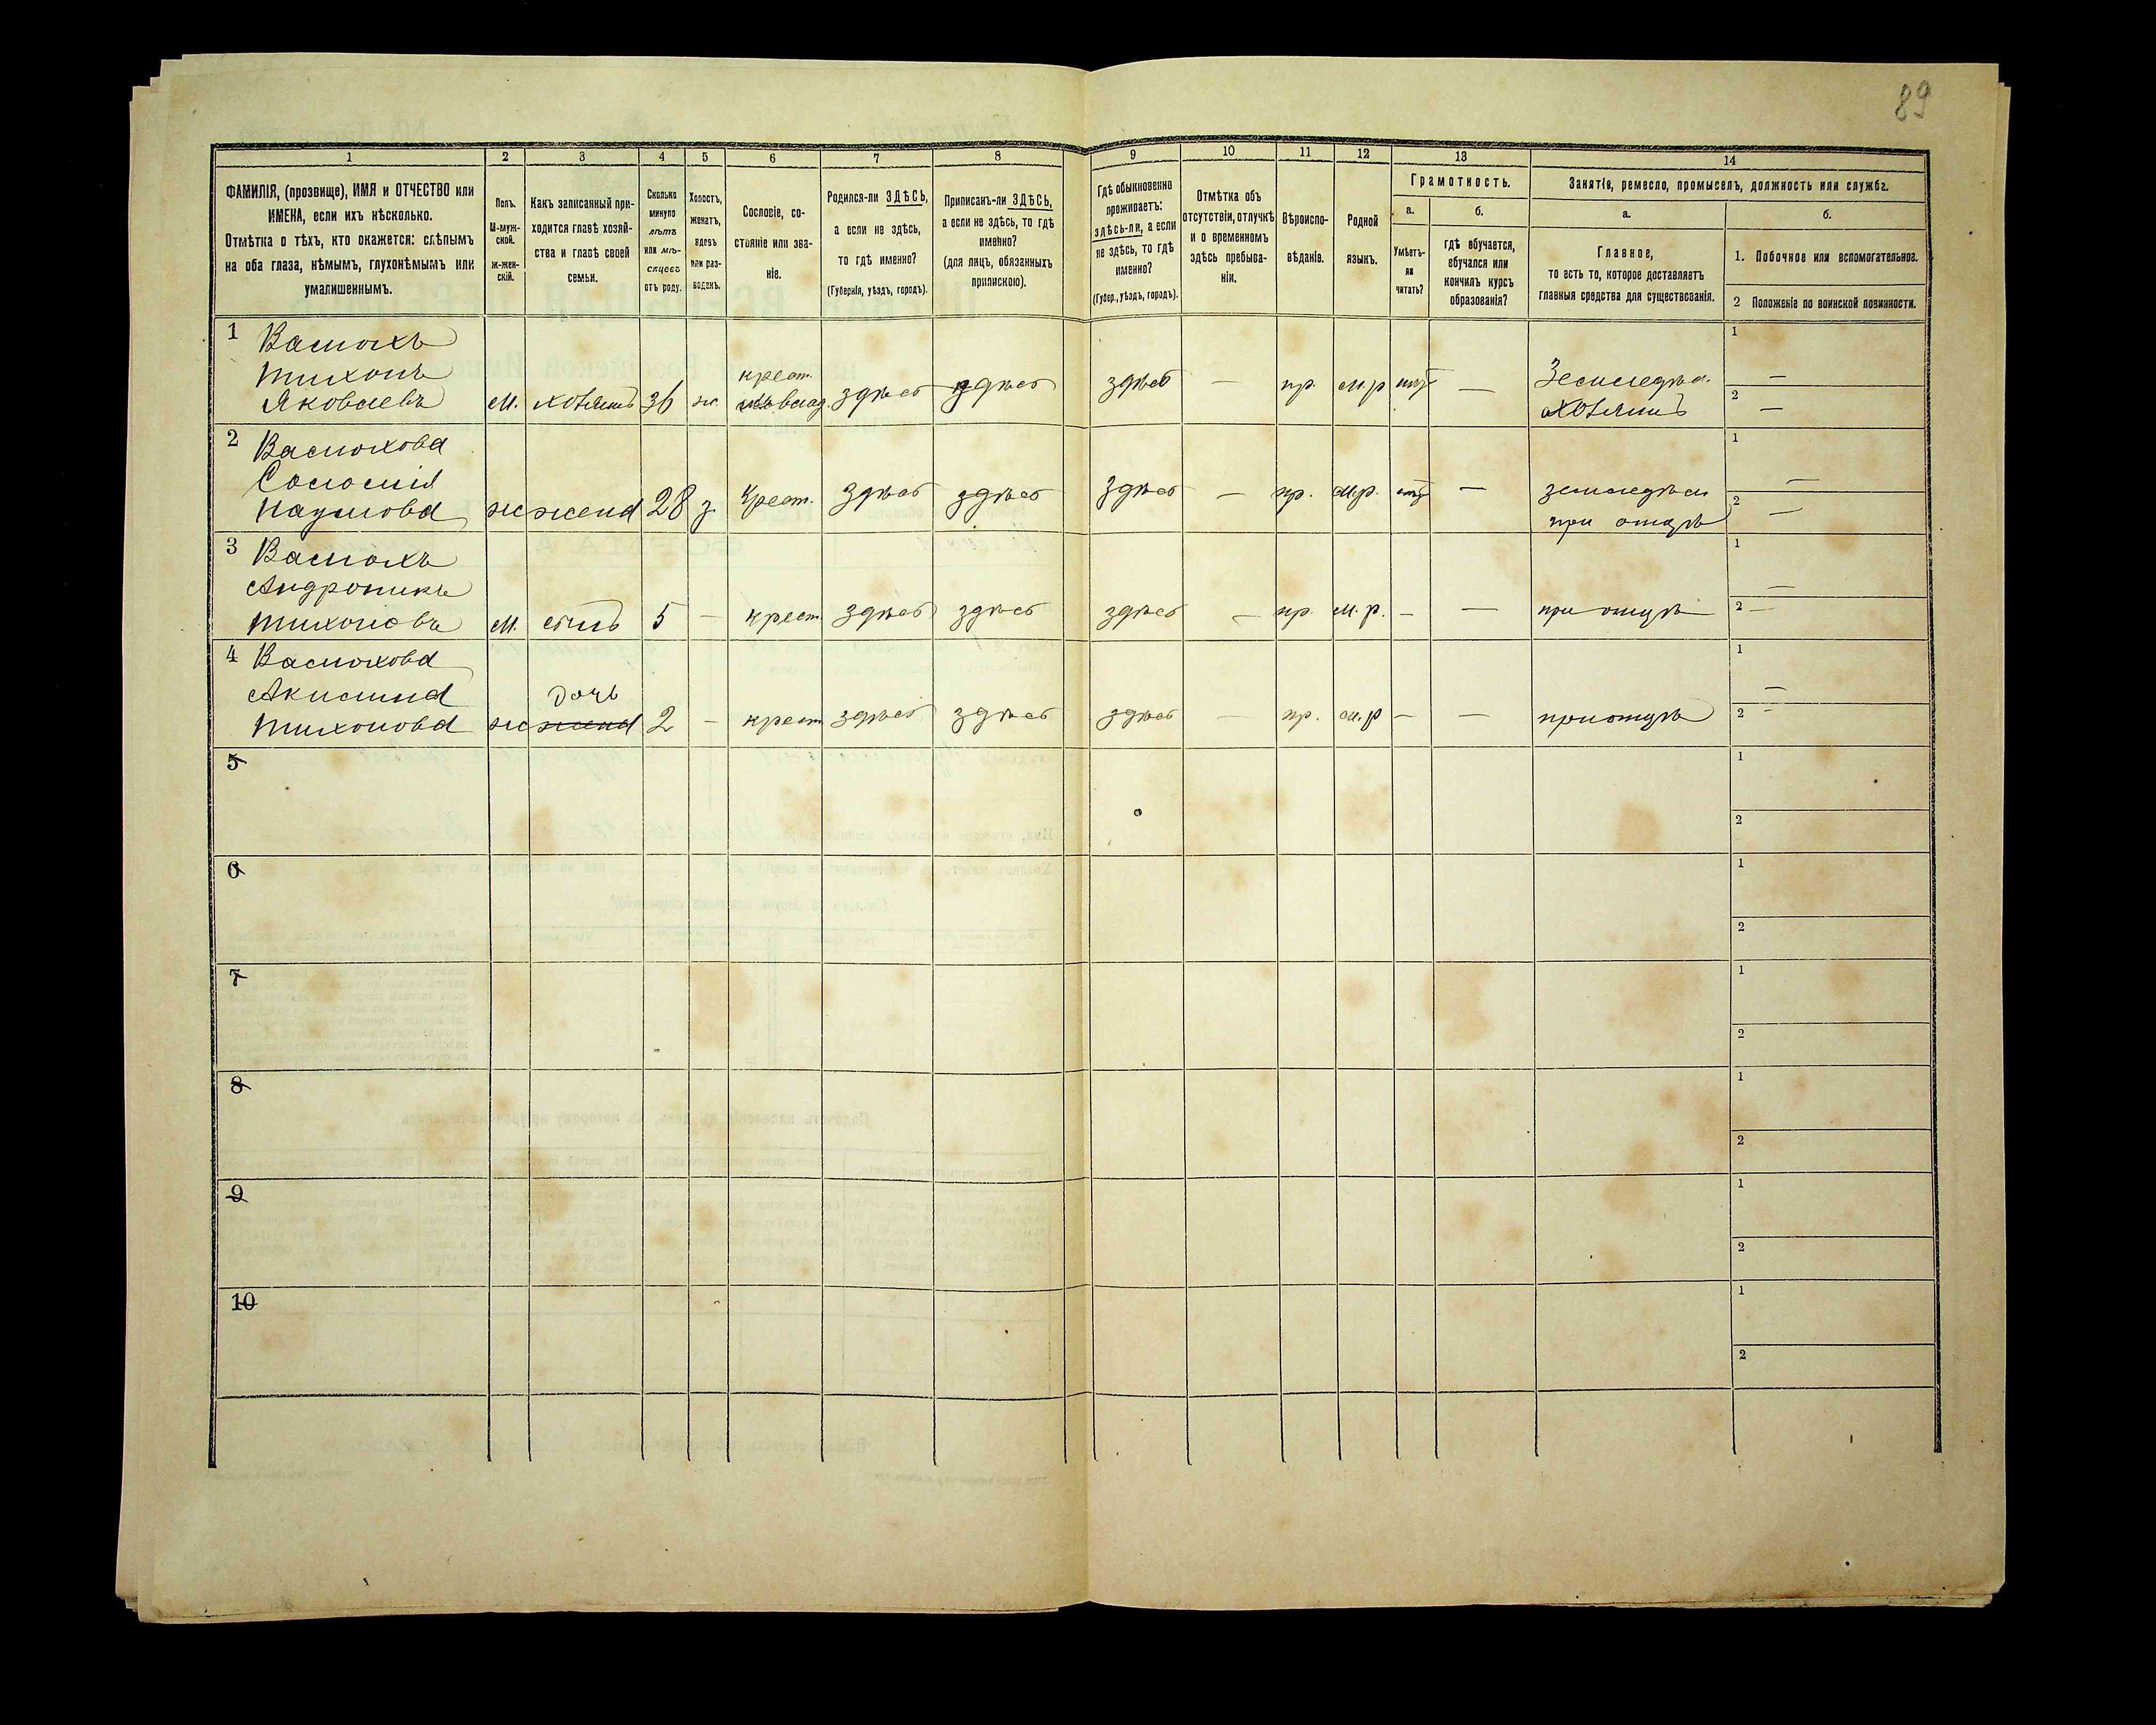 89
1 2 3 4 5 6 7 8 9 10 11 12 13 14
ФАМИЛІЯ, (прозвище), ИМЯ и ОТЧЕСТВО или
ИМЕНА, если ихъ нѣсколько.
Отмѣтка о тѣхъ, кто окажется: слѣпымъ
на оба глаза, нѣмымъ, глухонѣмымъ или
умалишеннымъ.
Полъ.
М-муж-
ской.
ж-жен-
скій.
Какъ записанный при-
ходится главѣ хозяй-
ства и главѣ своей
семьи.
Сколько
минуло
лѣтъ
или мѣ-
сяцевъ
отъ роду.
Холостъ,
женатъ,
вдовъ
или раз-
веденъ.
Сословіе, со-
стояніе или зва-
ніе.
Родился-ли ЗДѢСЬ,
а если не здѣсь,
то гдѣ именно?
(Губернія, уѣздъ, городъ).
Приписанъ-ли ЗДѢСЬ,
а если не здѣсь, то гдѣ
именно?
(для лицъ, обязанныхъ
припискою).
Гдѣ обыкновенно
проживаетъ:
здѣсь-ли, а если
не здѣсь, то гдѣ
именно?
(Губер., уѣздъ, городъ).
Отмѣтка объ
отсутствіи, отлучкѣ
и о временномъ
здѣсь пребыва-
ніи.
Вѣроиспо-
вѣданіе.
Родной
языкъ.
Грамотность.
а.
Умѣетъ-
ли
читать?
б.
гдѣ обучается,
обучался или
кончилъ курсъ
образованія?
Занятіе, ремесло, промыселъ, должность или служба.
а.
Главное,
то есть то, которое доставляетъ
главныя средства для существованія.
б.
1. Побочное или вспомогательное.
2 Положеніе по воинской повинности.
1 Васюхъ
Тихонъ
Яковлевъ
м. хозяинъ 36 ж. крест. влад. здѣсь здѣсь здѣсь — пр. м.р — Земледѣл.
хозяинъ
1 —
2 —
2 Васюхова
Соломія
Наумова
ж жена 28 з. крест. здѣсь здѣсь здѣсь — пр. м.р. — земледѣл
при отцѣ
1 —
2 —
3 Васюхъ
Андроникъ
Тихоновъ
м. сынъ 5 — крест. здѣсь здѣсь здѣсь — пр. м.р. — — при отцѣ
1 —
2 —
4 Васюхова
Акилина
Тихонова
дочь
ж жена 2 — крест здѣсь здѣсь здѣсь — пр. м.р — — при отцѣ
1 —
2 —
5
1
2
6
1
2
7
1
2
8
1
2
9
1
2
10
1
2